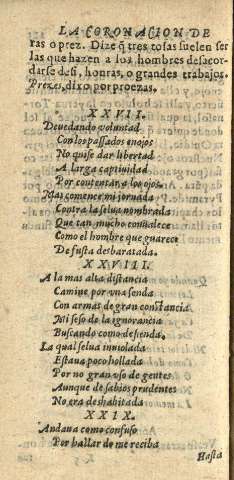 LA CORONACION DE
ras o prez. Dize q̃ tres cosas suelen ser
las que hazen a los hombres desacor-
darse de si, honras, o grandes trabajos.
Prezes, dixo por proezas.
XXVII.
Deuedando voluntad
Con los passados enojos
No quise dar libertad
A larga captiuidad
Por contentar a los ojos.
Mas comence mi jornada
Contra la selua nombrada
Que tan mucho conualece
Como el hombre que guarece
De fusta desbaratada.
XXVIII.
A la mas alta distancia
Camine por vna senda
Con armas de gran constancia
Mi seso de la ignorancia
Buscando como defienda.
La qual selua inuiolada
Estaua poco hollada
Por no gran vso de gentes
Aunque de sabios prudentes
No era deshabitada
XXIX.
Andaua como confuso
Por hallar do me reciba
Hasta